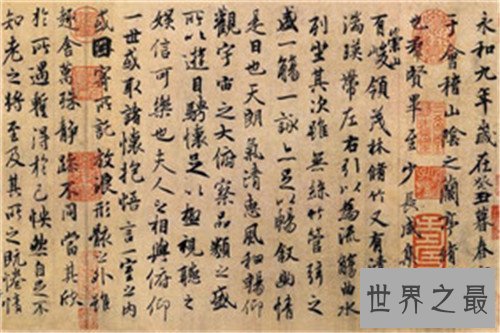 永和九年歲在癸丑暮春
于會稽山陰之蘭亭脩
也群賢畢至少長咸集
有崇山峻領茂林脩竹又有清
湍暎帶左右引以為流觴曲水
列坐其次雖無絲竹管弦之
盛一觴一詠亦足以暢敘幽情
是日也天朗氣清惠風和暢仰
觀宇宙之大俯察品類之盛
所以遊目騁懷足以極視聽之
娛信可樂也夫人之相與俯仰
一世或取諸懷抱悟言一室之內
或因寄所託放浪形骸之外雖
趣舍萬殊靜躁不同當其欣
於所遇暫得於己怏然自足不
知老之將至及其所之既倦情
世界之最